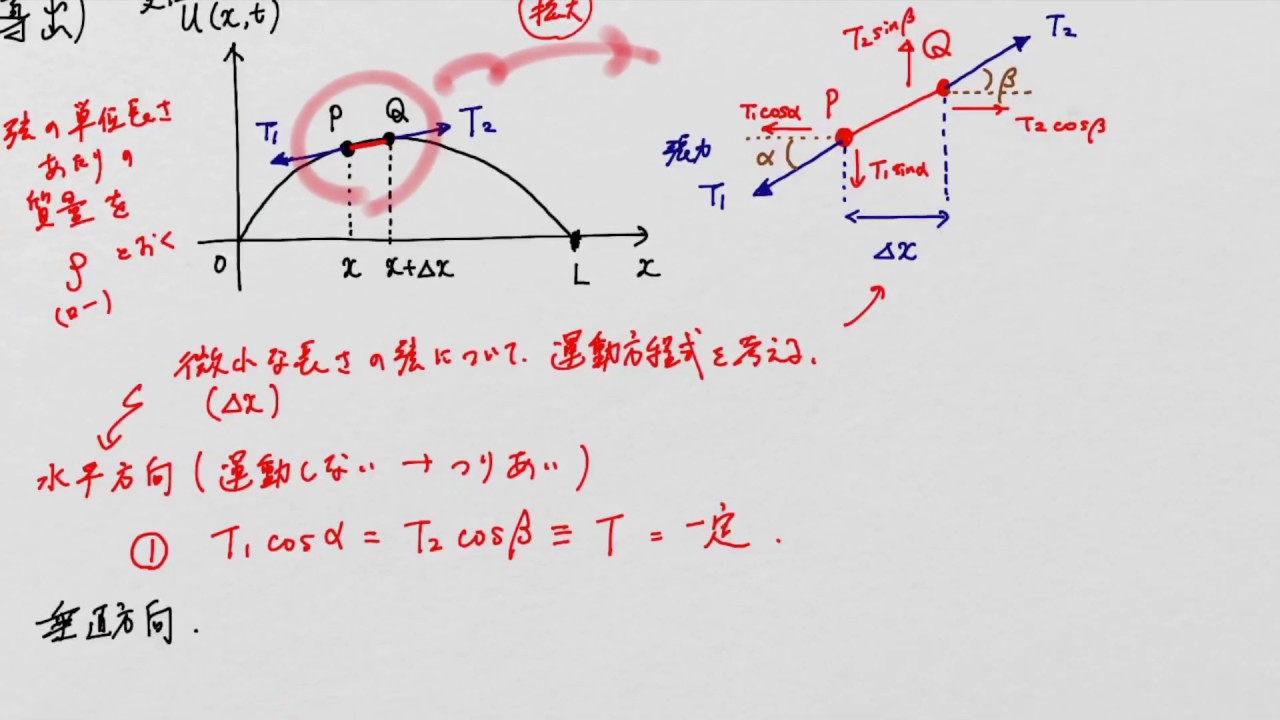 導出)
u(x,t)
拡大
弦の単位長さ
あたりの
質量を
ρ とおく
(ロー)
P Q
T₁ T₂
0 x x+Δx L x
T₂sinβ Q T₂
β
T₁cosα P
T₂cosβ
張力 α T₁sinα
T₁
Δx
微小な長さの弦について、運動方程式を考える.
(Δx)
水平方向(運動しない → つりあい)
① T₁cosα = T₂cosβ ≡ T = 一定.
垂直方向.